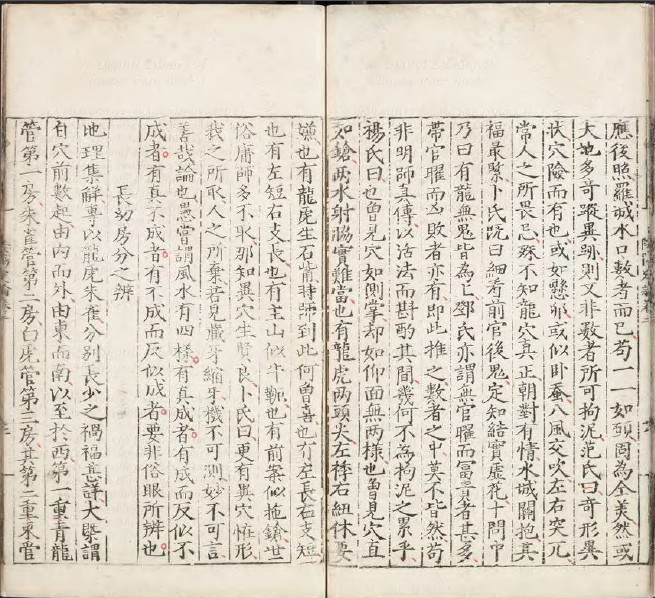 應後照羅城水口數者而已苟一一如頤固為全美然或
大地多奇蹤異跡則又非數者所可拘泥范氏曰奇形異
狀穴險而有也或如懸卵或似卧蚕八風交吹左右突兀
當人之所畏忌殊不知龍穴真正朝對有情水城關抱其
福最緊卜氏既曰細看前官後鬼定知結實虛花十問中
乃曰有龍無鬼皆為亡鄧氏亦謂無官曜而富貴者甚多
帶官曜而凶敗者亦有即此推之數者之中莫不皆然苟
非明師真傳以活法而斟酌其間幾何不為拘泥之累乎
楊氏曰也曾見穴如側掌却如仰面無两樣也曾見穴直
如鎗两水射脇實難當也有龍虎两頭尖左梓右紐休要
嫌也有龍虎生石嘴時師到此何曾喜也有左長右支短
也有左短右支長也有主山似牛軛也有前案似拖鎗世
俗庸師多不取那知異穴生賢良卜氏曰更有異穴恠形
我之所取人之所棄若見藏牙縮爪機不可測妙不可言
善哉論也愚嘗謂風水有四樣有真成者有成而反似不
成者有真不成者有不成而反似成者要非俗眼所辨也
長幼房分之辨
地理集解專以龍虎朱雀分別長少之禍福甚詳大槩謂
自穴前數起由内而外由東而南以至於西第一重青龍
管第一房朱雀管第二房白虎管第三房其第二重東管